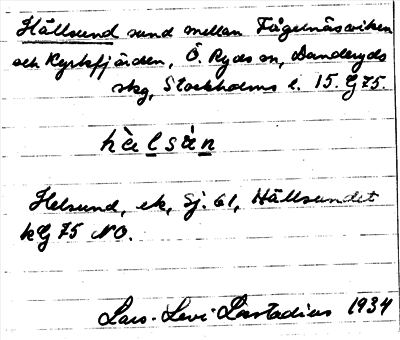 Hällsund sund mellan Fågelnäsviken
och Kyrkfjärden, Ö. Ryds sn, Danderyds
skg, Stockholms l. 15. G 75.
hȧ̀lsȧ́n
Helsund, ek, Sj. 61, Hällsundet
kG 75 NO.
Lars-Levi Læstadius 1934